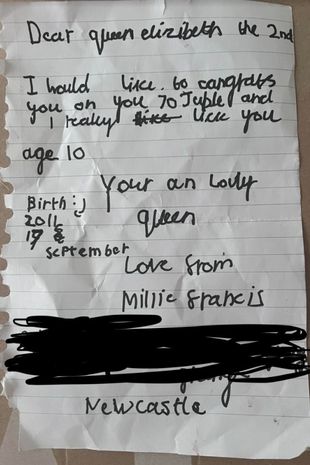 Dear queen elizibeth the 2nd
I would like to congrats
you on you 70 Juble and
I really like lick you
age 10
Your an lovly
queen
Birth :j
2011
17
September
Love from
Millie francis
Newcastle